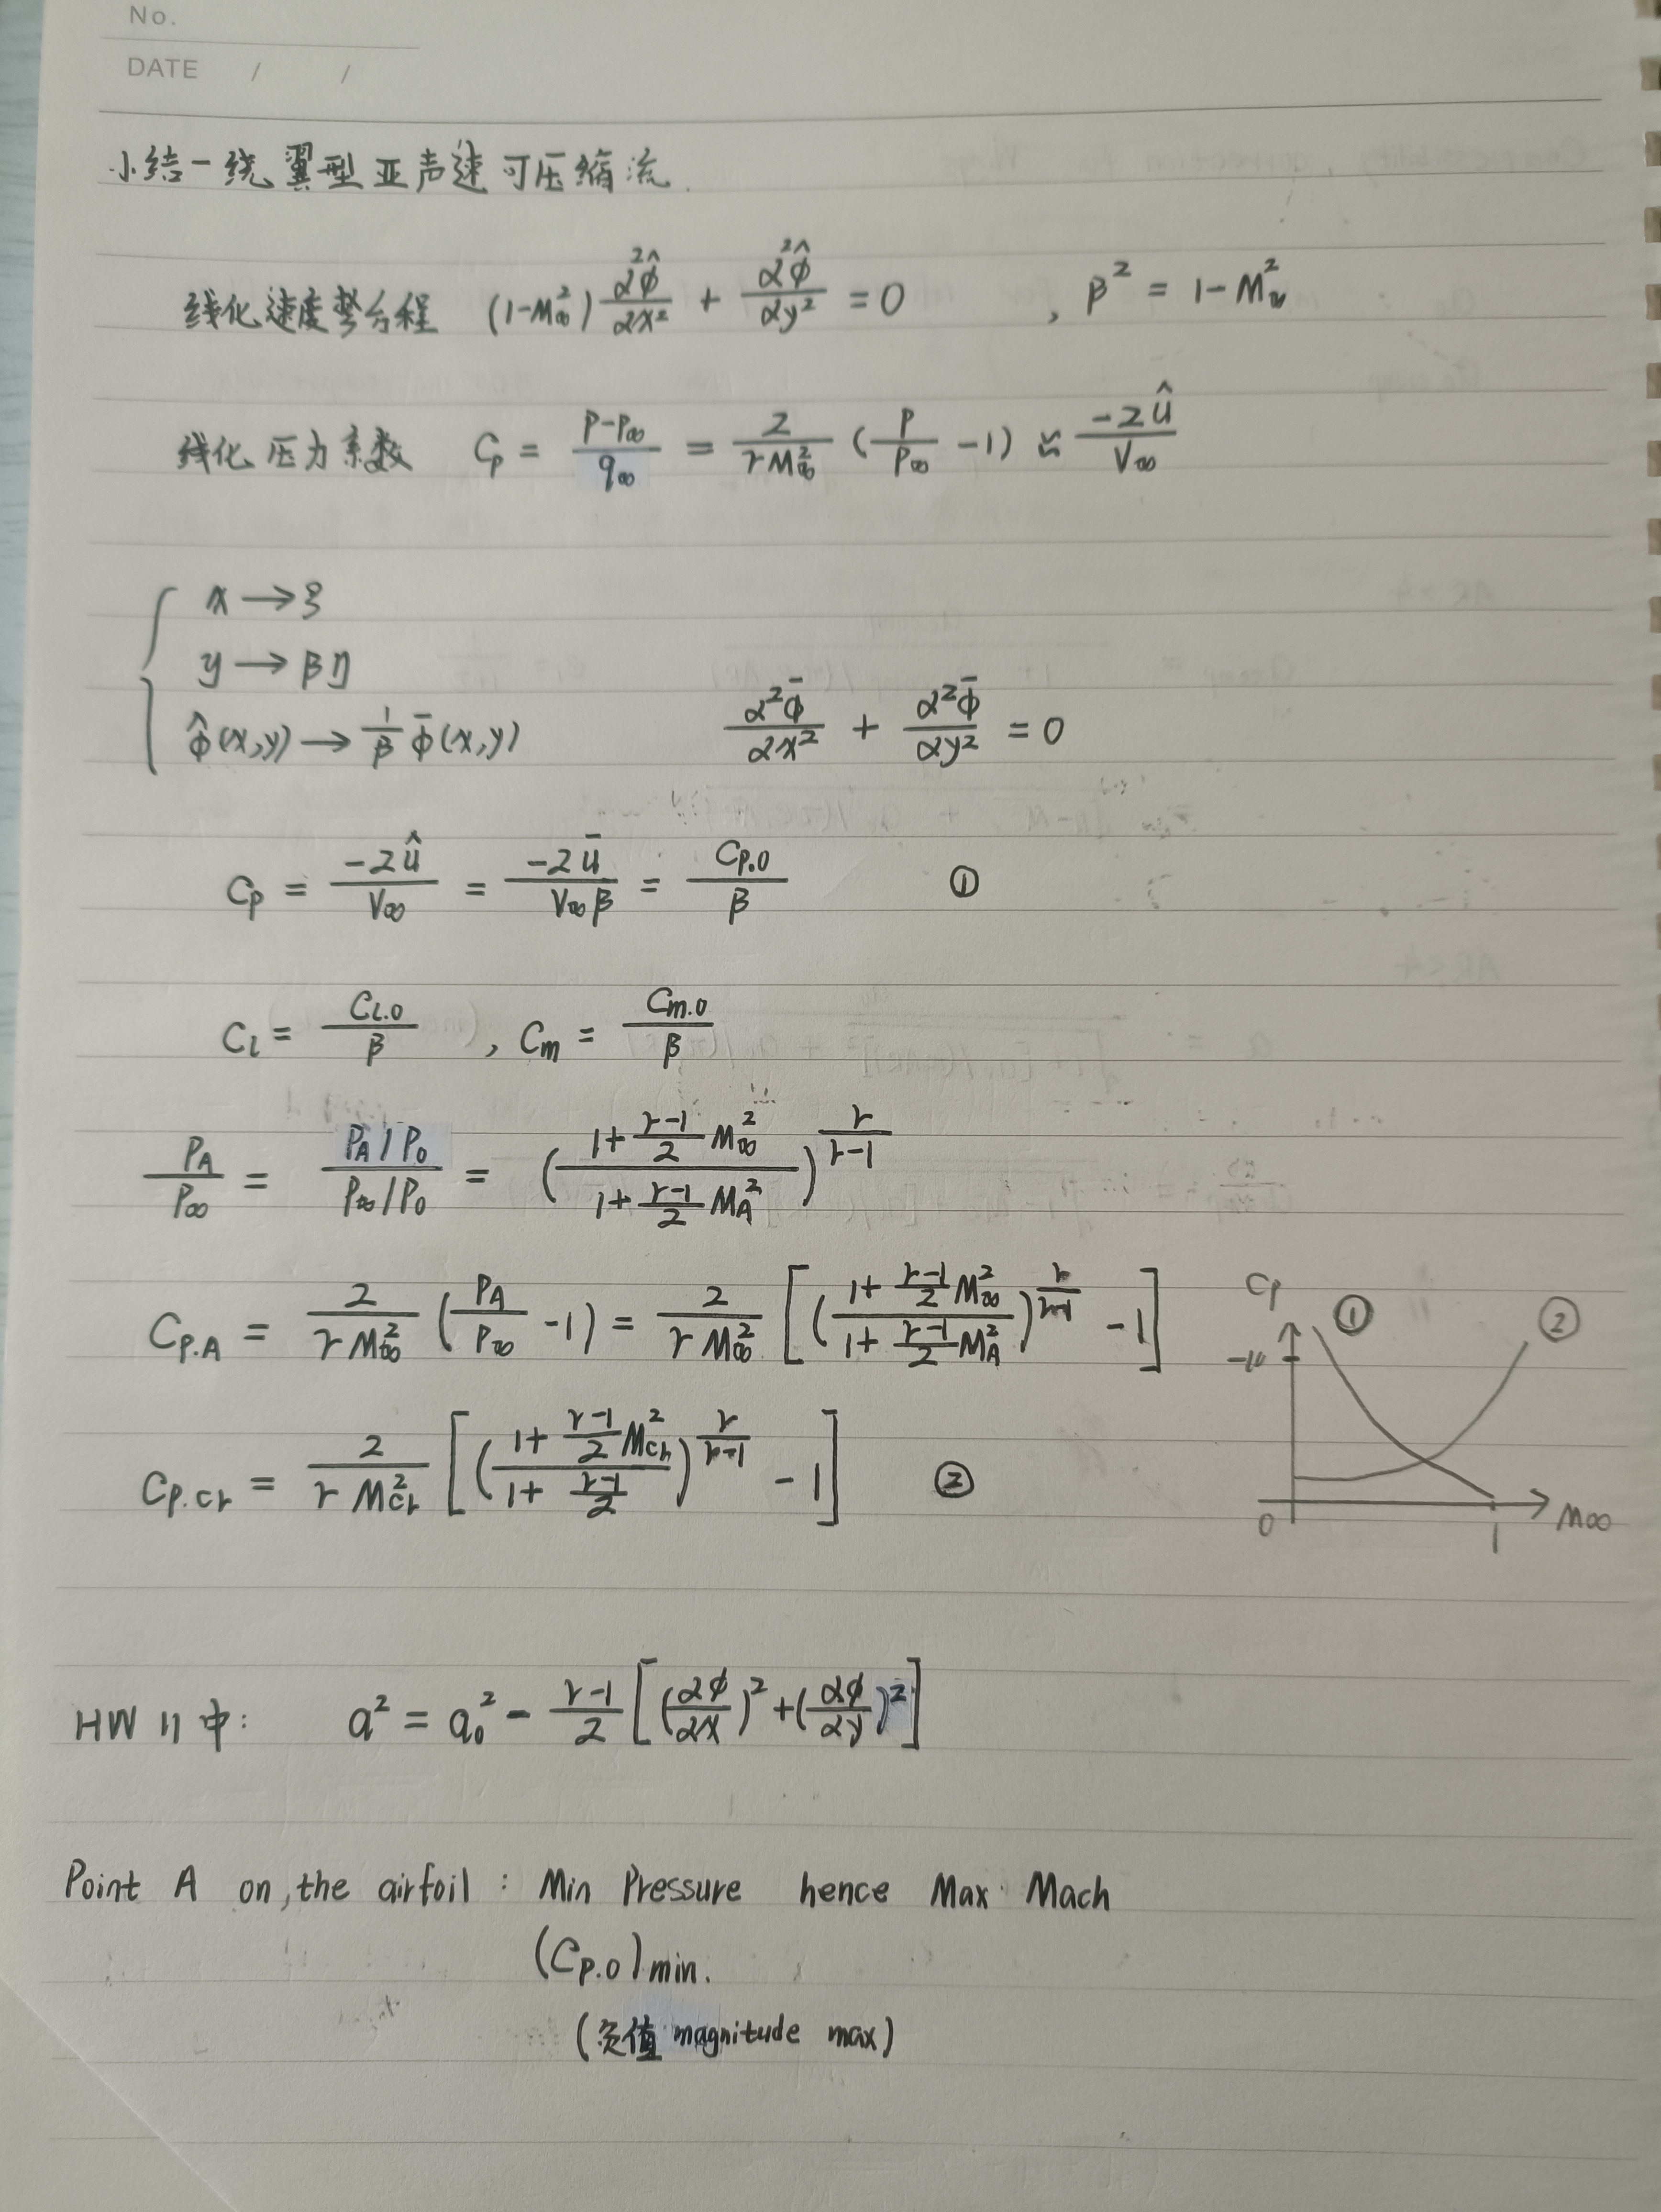 No.
DATE / /
小结一绕翼型亚声速可压缩流.
线化速度势方程 (1-M∞²) ∂²φ̂/∂x² + ∂²φ̂/∂y² = 0 , β² = 1-M∞²
线化压力系数 Cp = (P-P∞)/q∞ = 2/(γM∞²) (P/P∞ -1) ≈ -2û/V∞
x → ξ
y → βη
φ̂(x,y) → 1/β φ̄(x,y) ∂²φ̄/∂x² + ∂²φ̄/∂y² = 0
Cp = -2û/V∞ = -2ū/(V∞β) = Cp.0/β ①
Cl = CL.0/β , Cm = Cm.0/β
PA/P∞ = (PA/P0)/(P∞/P0) = ((1+(γ-1)/2 M∞²)/(1+(γ-1)/2 MA²))^(γ/(γ-1))
Cp.A = 2/(γM∞²) (PA/P∞ -1) = 2/(γM∞²) [((1+(γ-1)/2 M∞²)/(1+(γ-1)/2 MA²))^(γ/(γ-1)) -1]
Cp.cr = 2/(γMcr²) [((1+(γ-1)/2 Mcr²)/(1+(γ-1)/2))^(γ/(γ-1)) -1] ②
Cp
① ②
0 1 M∞
HW 11 中: a² = a0² - (γ-1)/2 [(∂φ/∂x)² + (∂φ/∂y)²]
Point A on, the airfoil : Min Pressure hence Max Mach
(Cp.0)min.
(负值 magnitude max)